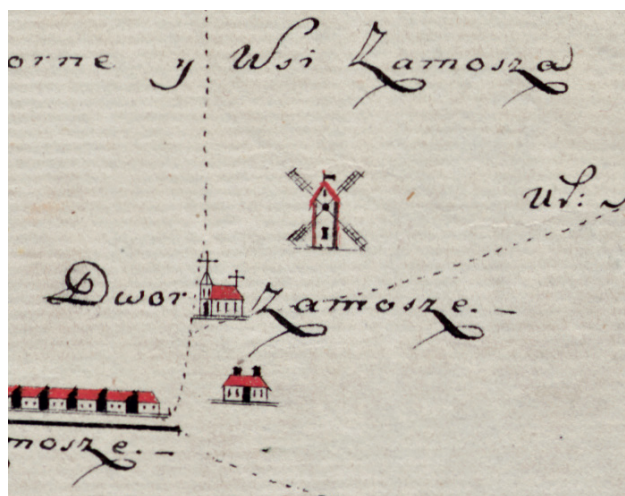 orne y Wsi Zamosza
Dwor Zamosze.-
mosze.-